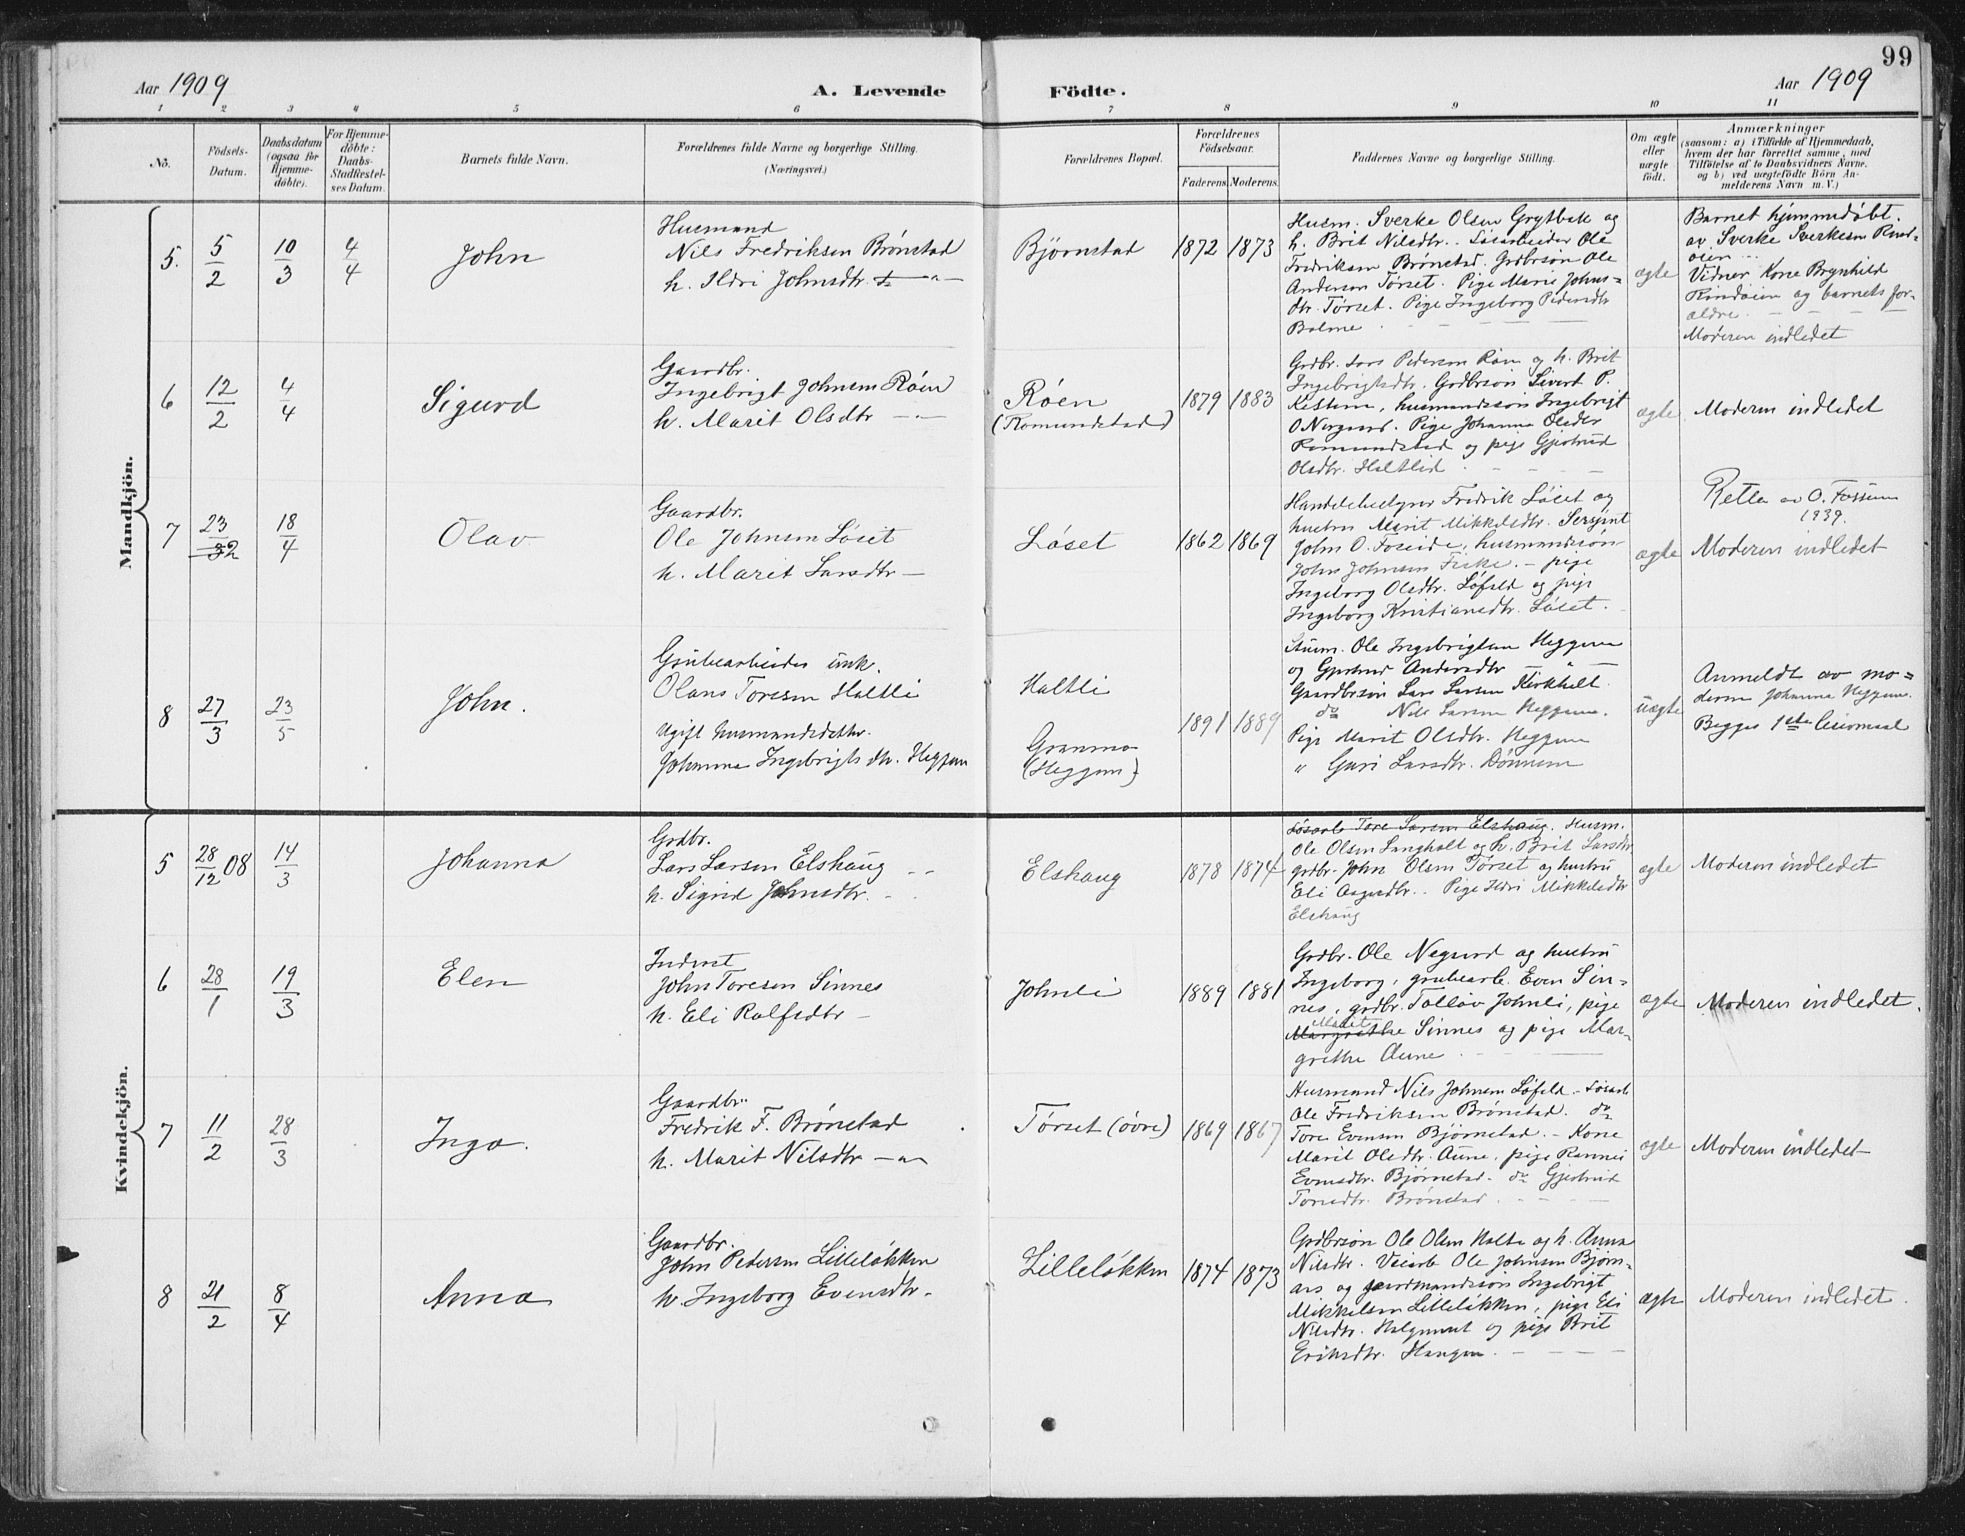 99
Aar 1909
A. Levende
Födte.
Aar 1909
1 2 3 4 5 6 7 8 9 10 11
No.
Födsels-
Datum.
Daabsdatum
(ogsaa for
Hjemme-
döbte).
For Hjemme-
döbte:
Daabs-
Stadfestel-
ses Datum.
Barnets fulde Navn.
Forældrenes fulde Navne og borgerlige Stilling.
(Næringsvei.)
Forældrenes Bopæl.
Forældrenes
Födselsaar.
Faderens. Moderens.
Faddernes Navne og borgerlige Stilling.
Om ægte
eller
uægte
født.
Anmærkninger
(saasom: a) i Tilfælde af Hjemmedaab,
hvem der har forrettet samme, med
Tilföielse af to Daabsvidners Navne.
og b) ved uægtefödte Börn An-
melderens Navn m. V.)
Mandkjön.
5. 5/2 10/3 4/4
John
Husmand
Nils Fredriksen Brønstad
h. Ildri Johnsdtr
Bjørnstad
1872 1873
Husm. Sverke Olsen Grytbak og
h. Brit Nilsdtr. Løsarbeider Ole
Fredriksen Brønstad. Grdbrsøn Ole
Andersen Tørset. Pige Marie Johns-
dtr. Tørset. Pige Ingeborg Pedersdtr
Bolme
ægte
Barnet hjemmedøbt.
av Sverke Sverkesen Rind-
øien
Vidner Kone Brynhild
Rindøien og barnets for-
ældre.
Moderen indledet
6 12/2 4/4
Sigurd
Gaardbr.
Ingebrigt Johnsen Røen
h. Marit Olsdtr
Røen
(Romundstad)
1879 1883
Grdbr. Lars Pedersen Røen og h. Brit
Ingebrigtsdtr. Grdbrsøn Sivert P.
husmandssøn Ingebrigt
Pige Johanna Olsdtr
Romundstad og pige Gjertrud
Olsdtr. Haltlid
ægte
Moderen indledet
7 23/2 18/4
Olav
Gaardbr.
Ole Johnsen Løset
h. Marit Larsdtr
Løset
1862 1869
Fredrik Løset og
hustru Marit Mikkelsdtr. Sersjant
John O. Foseide, husmandssøn
John Johnsen Fiske. pige
Ingeborg Olsdtr. Løfald og pige
Ingeborg Kristiansdtr. Løset.
ægte
Rettet av O. Fossum
1939.
Moderen indledet
8 27/3 23/5
John.
Grubearbeider unk.
Olaus Toresen Haltli
Ugift husmandsdatter
Johanna Ingebrigtsdtr. Heggem
Haltli
Granmo
(Heggem)
1891 1889
Ole Ingebrigtsen Heggem
og Gjertrud Andersdtr
Gaardbrsøn Lars Larsen Kirkholt.
do Nils Larsen Heggem.
Pige Marit Olsdtr. Heggem
" Guri Larsdtr. Dønnem
uægte
Anmeldt av mo-
deren Johanna Heggem.
Begges 1ste leiermaal
Kvindekjön.
5 28/12 08 14/3
Johanna
Grdbr.
Lars Larsen Elshaug
h. Sigrid Johnsdtr.
Elshaug
1878 1874
Løsarb Tore Larsen Elshaug. Husm.
Ole Olsen Langholt og h. Brit Larsdtr
grdbr. John Olsen Tørset og hustru
Eli Aagesdtr. Pige Ildri Mikkelsdtr
Elshaug
ægte
Moderen indledet
6 28/1 19/3
Elen
Inderst
John Toresen Sinnes
h. Eli Rolfsdtr
Johnli
1889 1881
Grdbr. Ole Negaard og hustru
Ingeborg, grubearb. Even Sin-
nes, grdbr. Tollav Johnli, pige
Marit
Margrethe Sinnes og pige Mar-
grethe Aune
ægte
Moderen indledet.
7 11/2 28/3
Inga.
Gaardbr.
Fredrik F. Brønstad
h. Marit Nilsdtr
Tørset (øvre)
1869 1867
Husmand Nils Johnsen Løfald. Løsarb
Ole Fredriksen Brønstad. do
Tore Evensen Bjørnstad. Kone
Marit Olsdtr. Aune, pige Rannei
Evensdtr. Bjørnstad. do Gjertrud
Toresdtr. Brønstad
ægte
Moderen indledet
8 21/2 8/4
Anna
Gaardbr.
John Pedersen Lilleløkken
h. Ingeborg Evensdtr.
Lilleløkken
1874 1873
Grdbrsøn Ole Olsen Holte og h. Anna
Nilsdtr. Veiarb Ole Johnsen Bjørn-
aas og gaardmandssøn Ingebrigt
Mikkelsen Lilleløkken, pige Eli
Nilsdtr. og pige Brit
Eriksdtr. Haugen.
ægte
Moderen indledet.